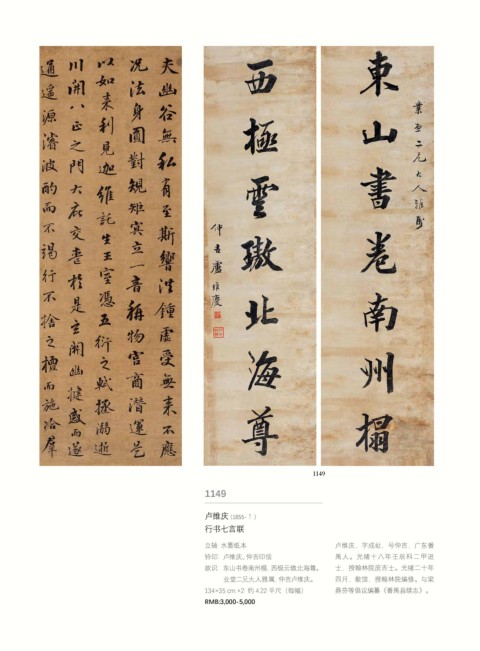 東山書卷南州榻
業堂二兄大人雅屬
西極雲璈北海尊
仲吉盧維慶
夫幽谷無私有至斯響洪鍾虛受無来不應
況法身圓對規矩冥立一音稱物宮商潛運是
以如来利見迦維託生王室憑五衍之軾拯溺逝
川開八正之門大庇交喪於是玄關幽揵感而遂
通遥源濬波酌而不竭行不捨之檀而施洽群
1149
1149
卢维庆(1855-?)
行书七言联
立轴 水墨纸本
钤印:卢维庆、仲吉印信
款识:东山书卷南州榻,西极云璈北海尊。
业堂二兄大人雅属,仲吉卢维庆。
134×35 cm.×2 约 4.22 平尺(每幅)
RMB:3,000-5,000
卢维庆,字成处,号仲吉,广东番
禺人。光绪十八年壬辰科二甲进
士,授翰林院庶吉士。光绪二十年
四月,散馆,授翰林院编修。与梁
鼎芬等倡议编纂《番禺县续志》。